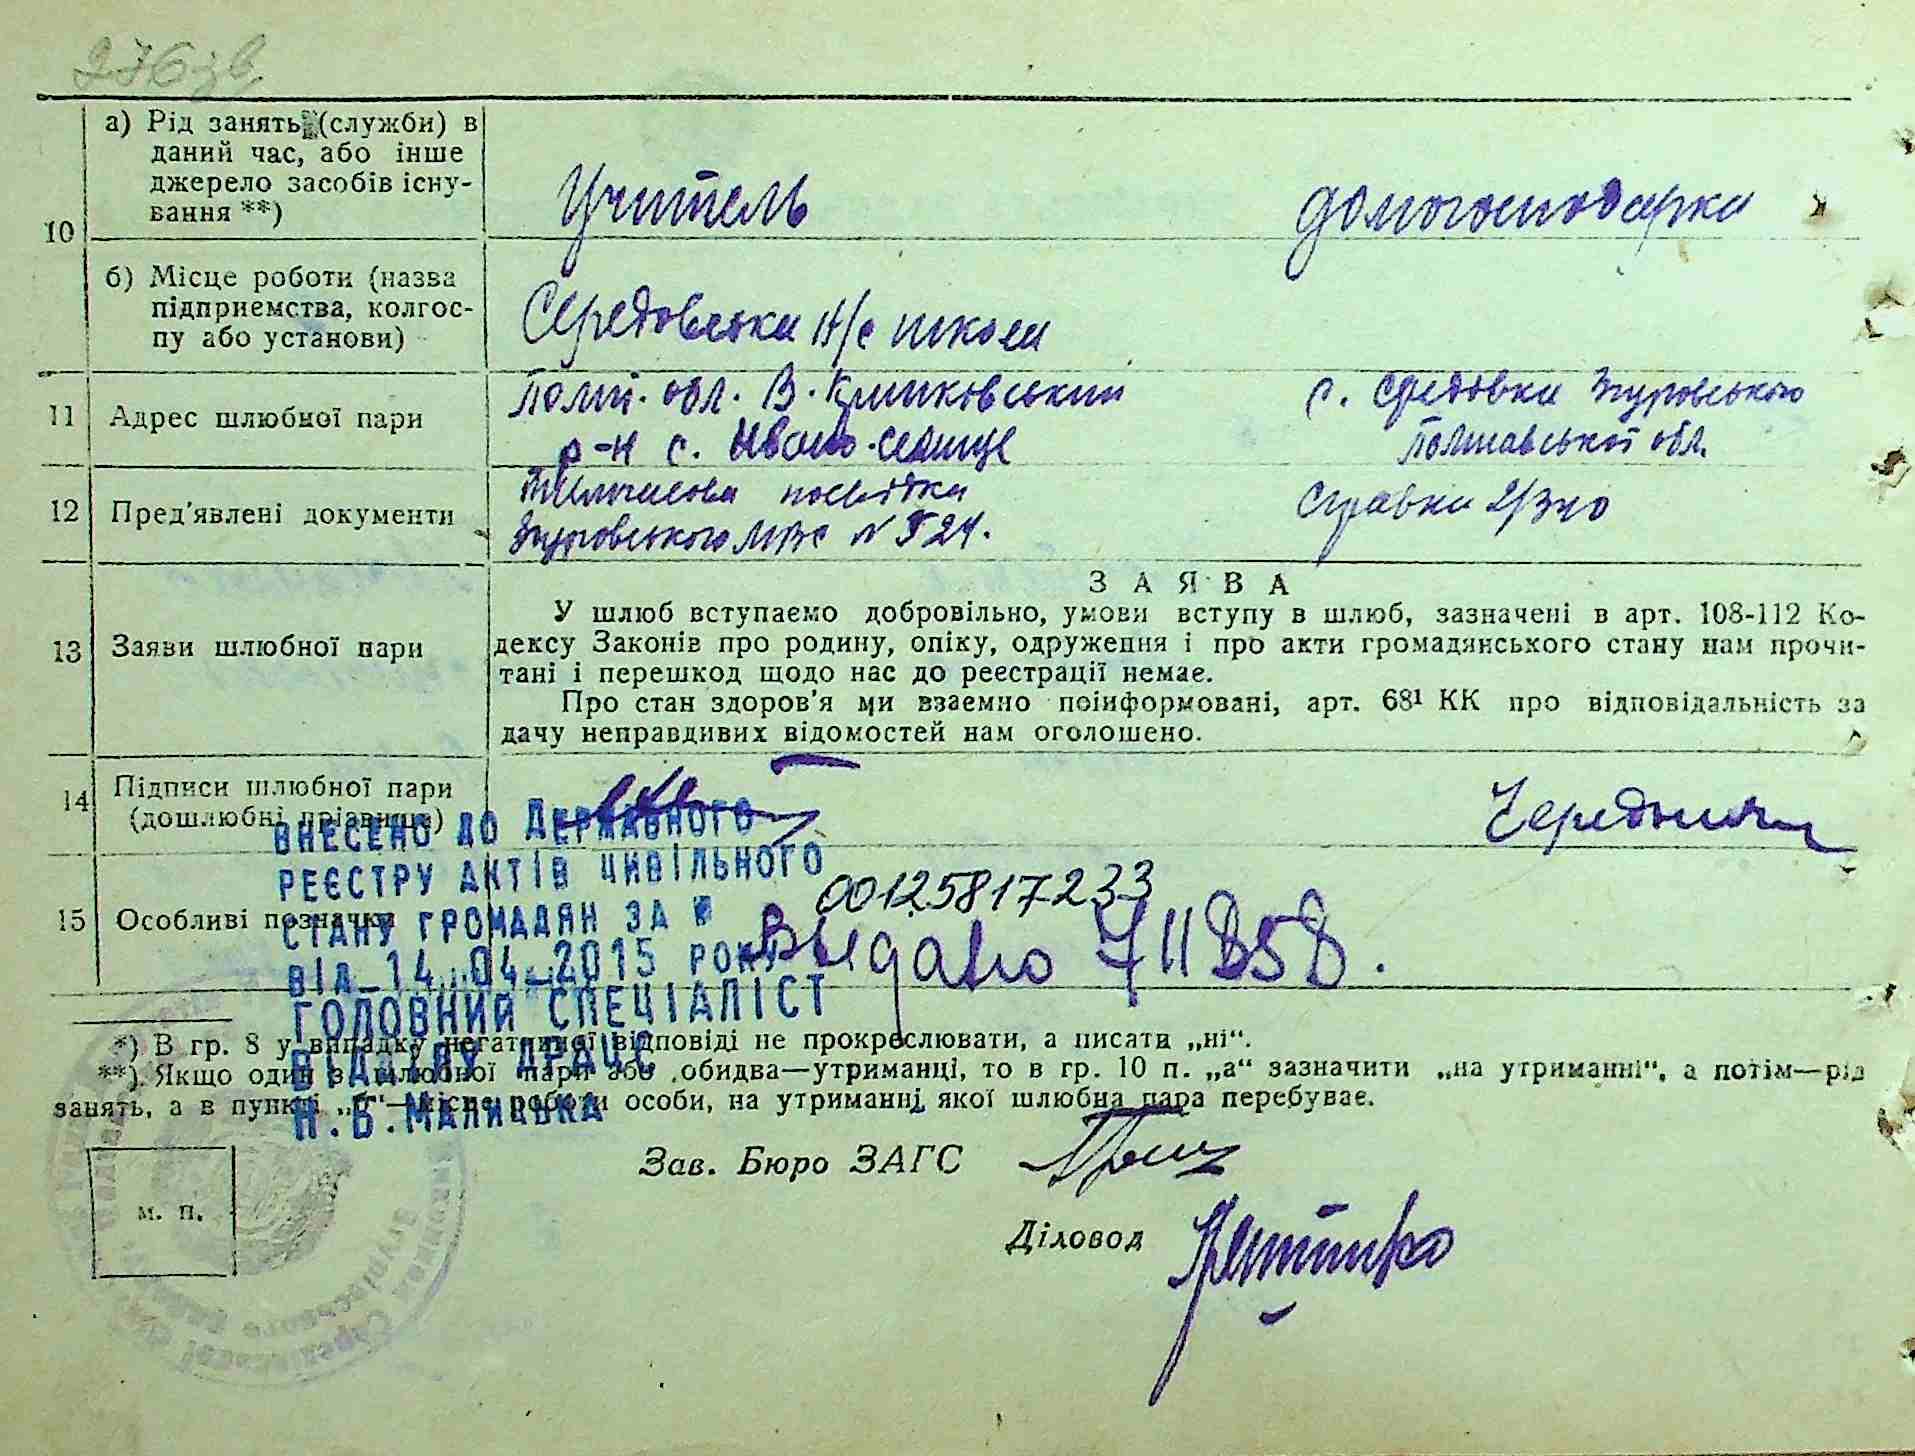 276зв.
10
а) Рід занять (служби) в
даний час, або інше
джерело засобів існу-
вання **)
Учитель
домогосподарка
б) Місце роботи (назва
підприємства, колгос-
пу або установи)
Середовська Н/с школа
11
Адрес шлюбної пари
Полт. обл. В. Кринковський
р-н с.
с. Средовка Згуровського
Полтавської обл.
12
Пред'явлені документи
Тимчасова посвідка
Згуровського МВС N 524.
Справка
13
Заяви шлюбної пари
ЗАЯВА
У шлюб вступаємо добровільно, умови вступу в шлюб, зазначені в арт. 108-112 Ко-
дексу Законів про родину, опіку, одруження і про акти громадянського стану нам прочи-
тані і перешкод щодо нас до реєстрації немає.
Про стан здоров'я ми взаємно поінформовані, арт. 68¹ КК про відповідальність за
дачу неправдивих відомостей нам оголошено.
14
Підписи шлюбної пари
(дошлюбні прізвища)
Чередник
15
Особливі позначки
ВНЕСЕНО ДО ДЕРЖАВНОГО
РЕЄСТРУ АКТІВ ЦИВІЛЬНОГО
СТАНУ ГРОМАДЯН ЗА №
00125817233
ВІД 14.04.2015 РОКУ
Видано 711858.
ГОЛОВНИЙ СПЕЦІАЛІСТ
ВІДДІЛУ ДРАЦС
Н.В.МАЛИЦЬКА
*) В гр. 8 у випадку негативної відповіді не прокреслювати, а писати „ні“.
**) Якщо один з шлюбної пари або обидва—утриманці, то в гр. 10 п. „а“ зазначити „на утриманні“, а потім—рід
занять, а в пункті „б“—місце роботи особи, на утриманні якої шлюбна пара перебуває.
м. п.
Зав. Бюро ЗАГС
Діловод